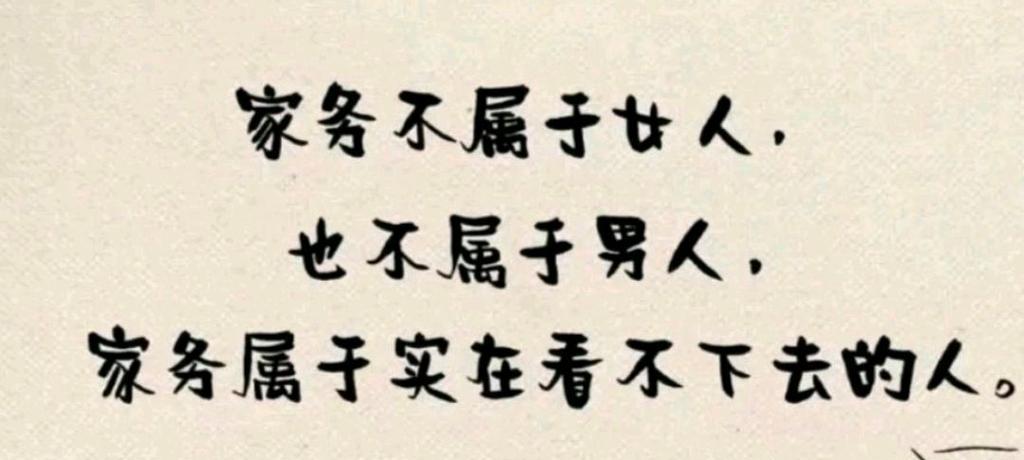 家务不属于女人，
也不属于男人，
家务属于实在看不下去的人。